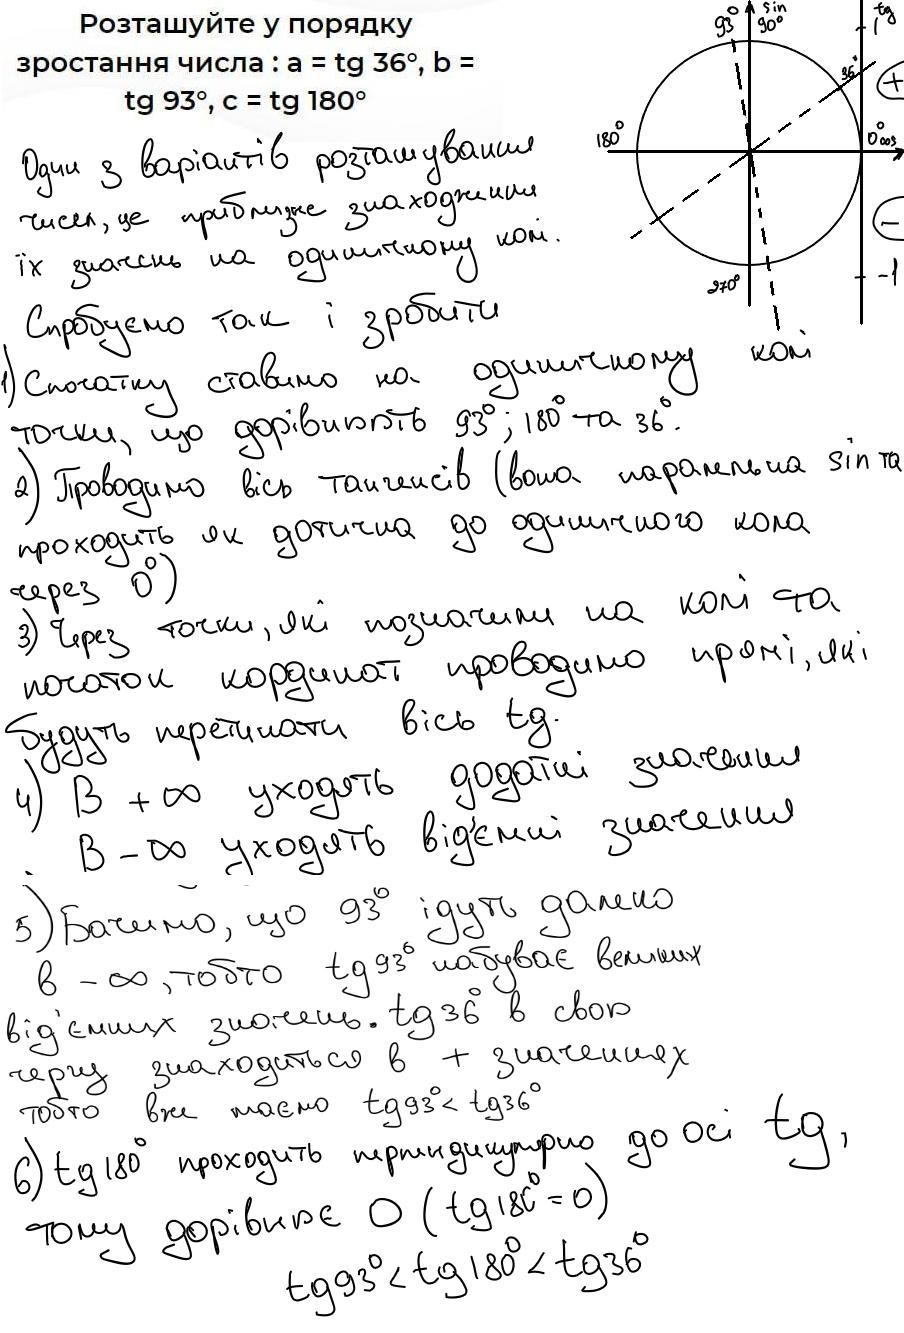 Розташуйте у порядку
зростання числа : a = tg 36°, b =
tg 93°, c = tg 180°
sin
tg
93°
90°
1
36°
+
180°
0°
cos
-
270°
-1
Один з варіантів розташування
чисел, це приблизне знаходження
їх значень на одиничному колі.
Спробуємо так і зробити
1) Спочатку ставимо на одиничному колі
точки, що дорівнюють 93°; 180° та 36°.
2) Проводимо вісь тангенсів (вона паралельна sin та
проходить як дотична до одиничного кола
через 0°)
3) Через точки, які позначили на колі та
початок кординат проводимо прямі, які
будуть перетинати вісь tg.
4) В + ∞ уходять додатні значення
В - ∞ уходять від'ємні значення
5) Бачимо, що 93° ідуть далеко
в - ∞, тобто tg 93° набуває великих
від'ємних значень. tg 36° в свою
чергу знаходиться в + значеннях
тобто вже маємо tg 93° < tg 36°
6) tg 180° проходить перпендикулярно до осі tg,
тому дорівнює 0 (tg 180° = 0)
tg 93° < tg 180° < tg 36°